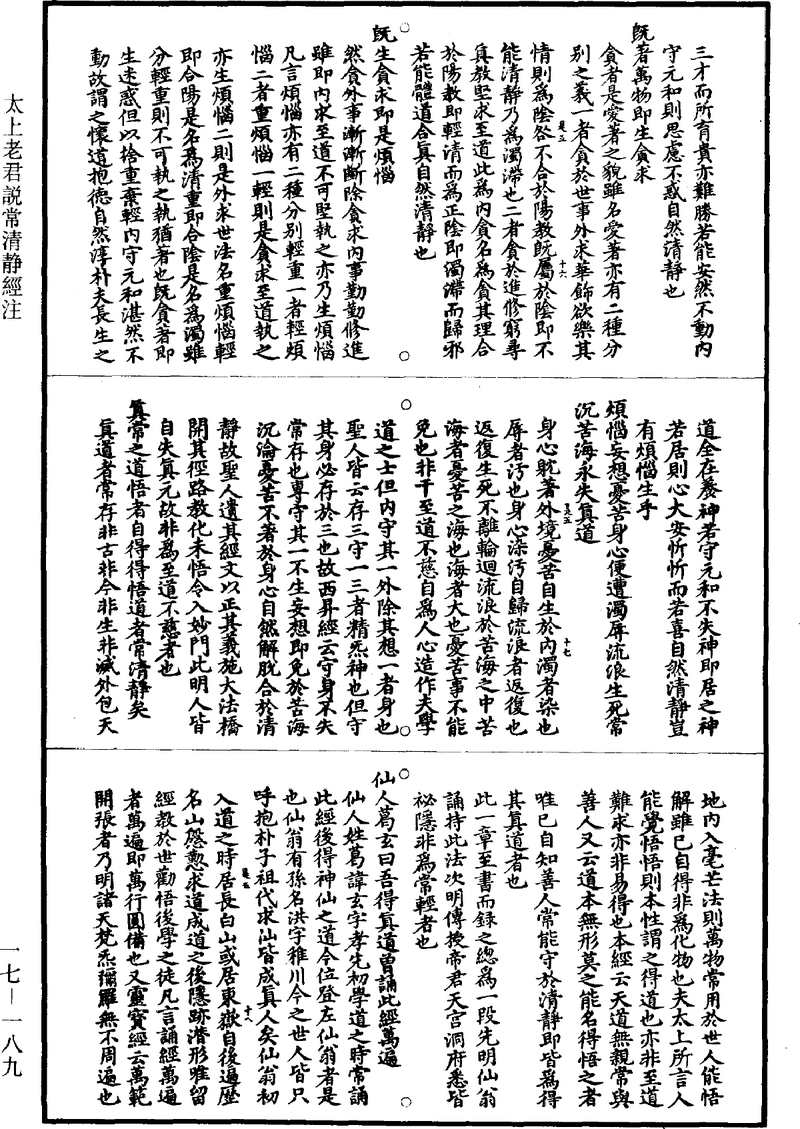 太上老君説常清静經注
三才而所育貴亦難勝若能安然不動内
守元和則思慮不惑自然清静也
既著萬物即生貪求
貪者是愛著之貌雖名愛著亦有二種分
别之義一者貪於世事外求華飾欲樂其
十六
情則爲陰咎不合於陽教既屬於陰即不
是五
能清静乃爲濁滯也二者貪於進修窮尋
真教堅求至道此爲内貪名爲貪其理合
於陽教即輕清而爲正陰即濁滯而歸邪
若能體道合真自然清静也
既生貪求即是煩惱
然貪外事漸漸斷除貪求内事勤勤修進
雖即内求至道不可堅執之亦乃生煩惱
凡言煩惱亦有二種分别輕重一者輕煩
惱二者重煩惱一輕則是貪求至道執之
亦生煩惱二則是外求世法名重煩惱輕
即合陽是名爲清重即合陰是名爲濁雖
分輕重則不可執之執猶著也既貪著即
生迷惑但以捨重棄輕内守元和湛然不
動故謂之懷道抱德自然淳朴夫長生之
道全在養神若守元和不失神即居之神
若居則心大安忻忻而若喜自然清静豈
有煩惱生乎
煩惱妄想憂苦身心便遭濁辱流浪生死常
沉苦海永失真道
是五
身心躭著外境憂苦自生於内濁者染也
十七
辱者汚也身心染汚自歸流浪者返復也
返復生死不離輪迴流浪於苦海之中苦
海者憂苦之海也海者大也憂苦事不能
免也非干至道不慈自爲人心造作夫學
道之士但内守其一外除其想一者身也
聖人皆云存三守一三者精炁神也但守
其身必存於三也故西昇經云守身不失
常存也專守其一不生妄想即免於苦海
沉淪憂苦不著於身心自然解脱合於清
静故聖人遺其經文以正其義施大法橋
開其徑路教化未悟令入妙門此明人皆
自失真元故非爲至道不慈者也
真常之道悟者自得得悟道者常清静矣
真道者常存非古非今非生非滅外包天
地内入毫芒法則萬物常用於世人能悟
解雖已自得非爲化物也夫太上所言人
能覺悟悟則本性謂之得道也亦非至道
難求亦非易得也本經云天道無親常與
善人又云道本無形莫之能名得悟之者
唯已自知善人常能守於清静即皆爲得
其真道者也
此一章至書而録之總爲一段先明仙翁
誦持此法次明傳授帝君天宫洞府悉皆
祕隱非爲常輕者也
仙人葛玄曰吾得真道曾誦此經萬遍
仙人姓葛諱玄字孝先初學道之時常誦
此經後得神仙之道今位登左仙翁者是
也仙翁有孫名洪字稚川今之世人皆只
呼抱朴子祖代求仙皆成真人矣仙翁初
是五
入道之時居長白山或居東嶽自後遍歷
十八
名山慇懃求道成道之後隱跡潜形唯留
經教於世勸悟後學之徒凡言誦經萬遍
者萬遍即萬行圓備也又靈寶經云萬範
開張者乃明諸天梵炁彌羅無不周遍也
一七—一八九